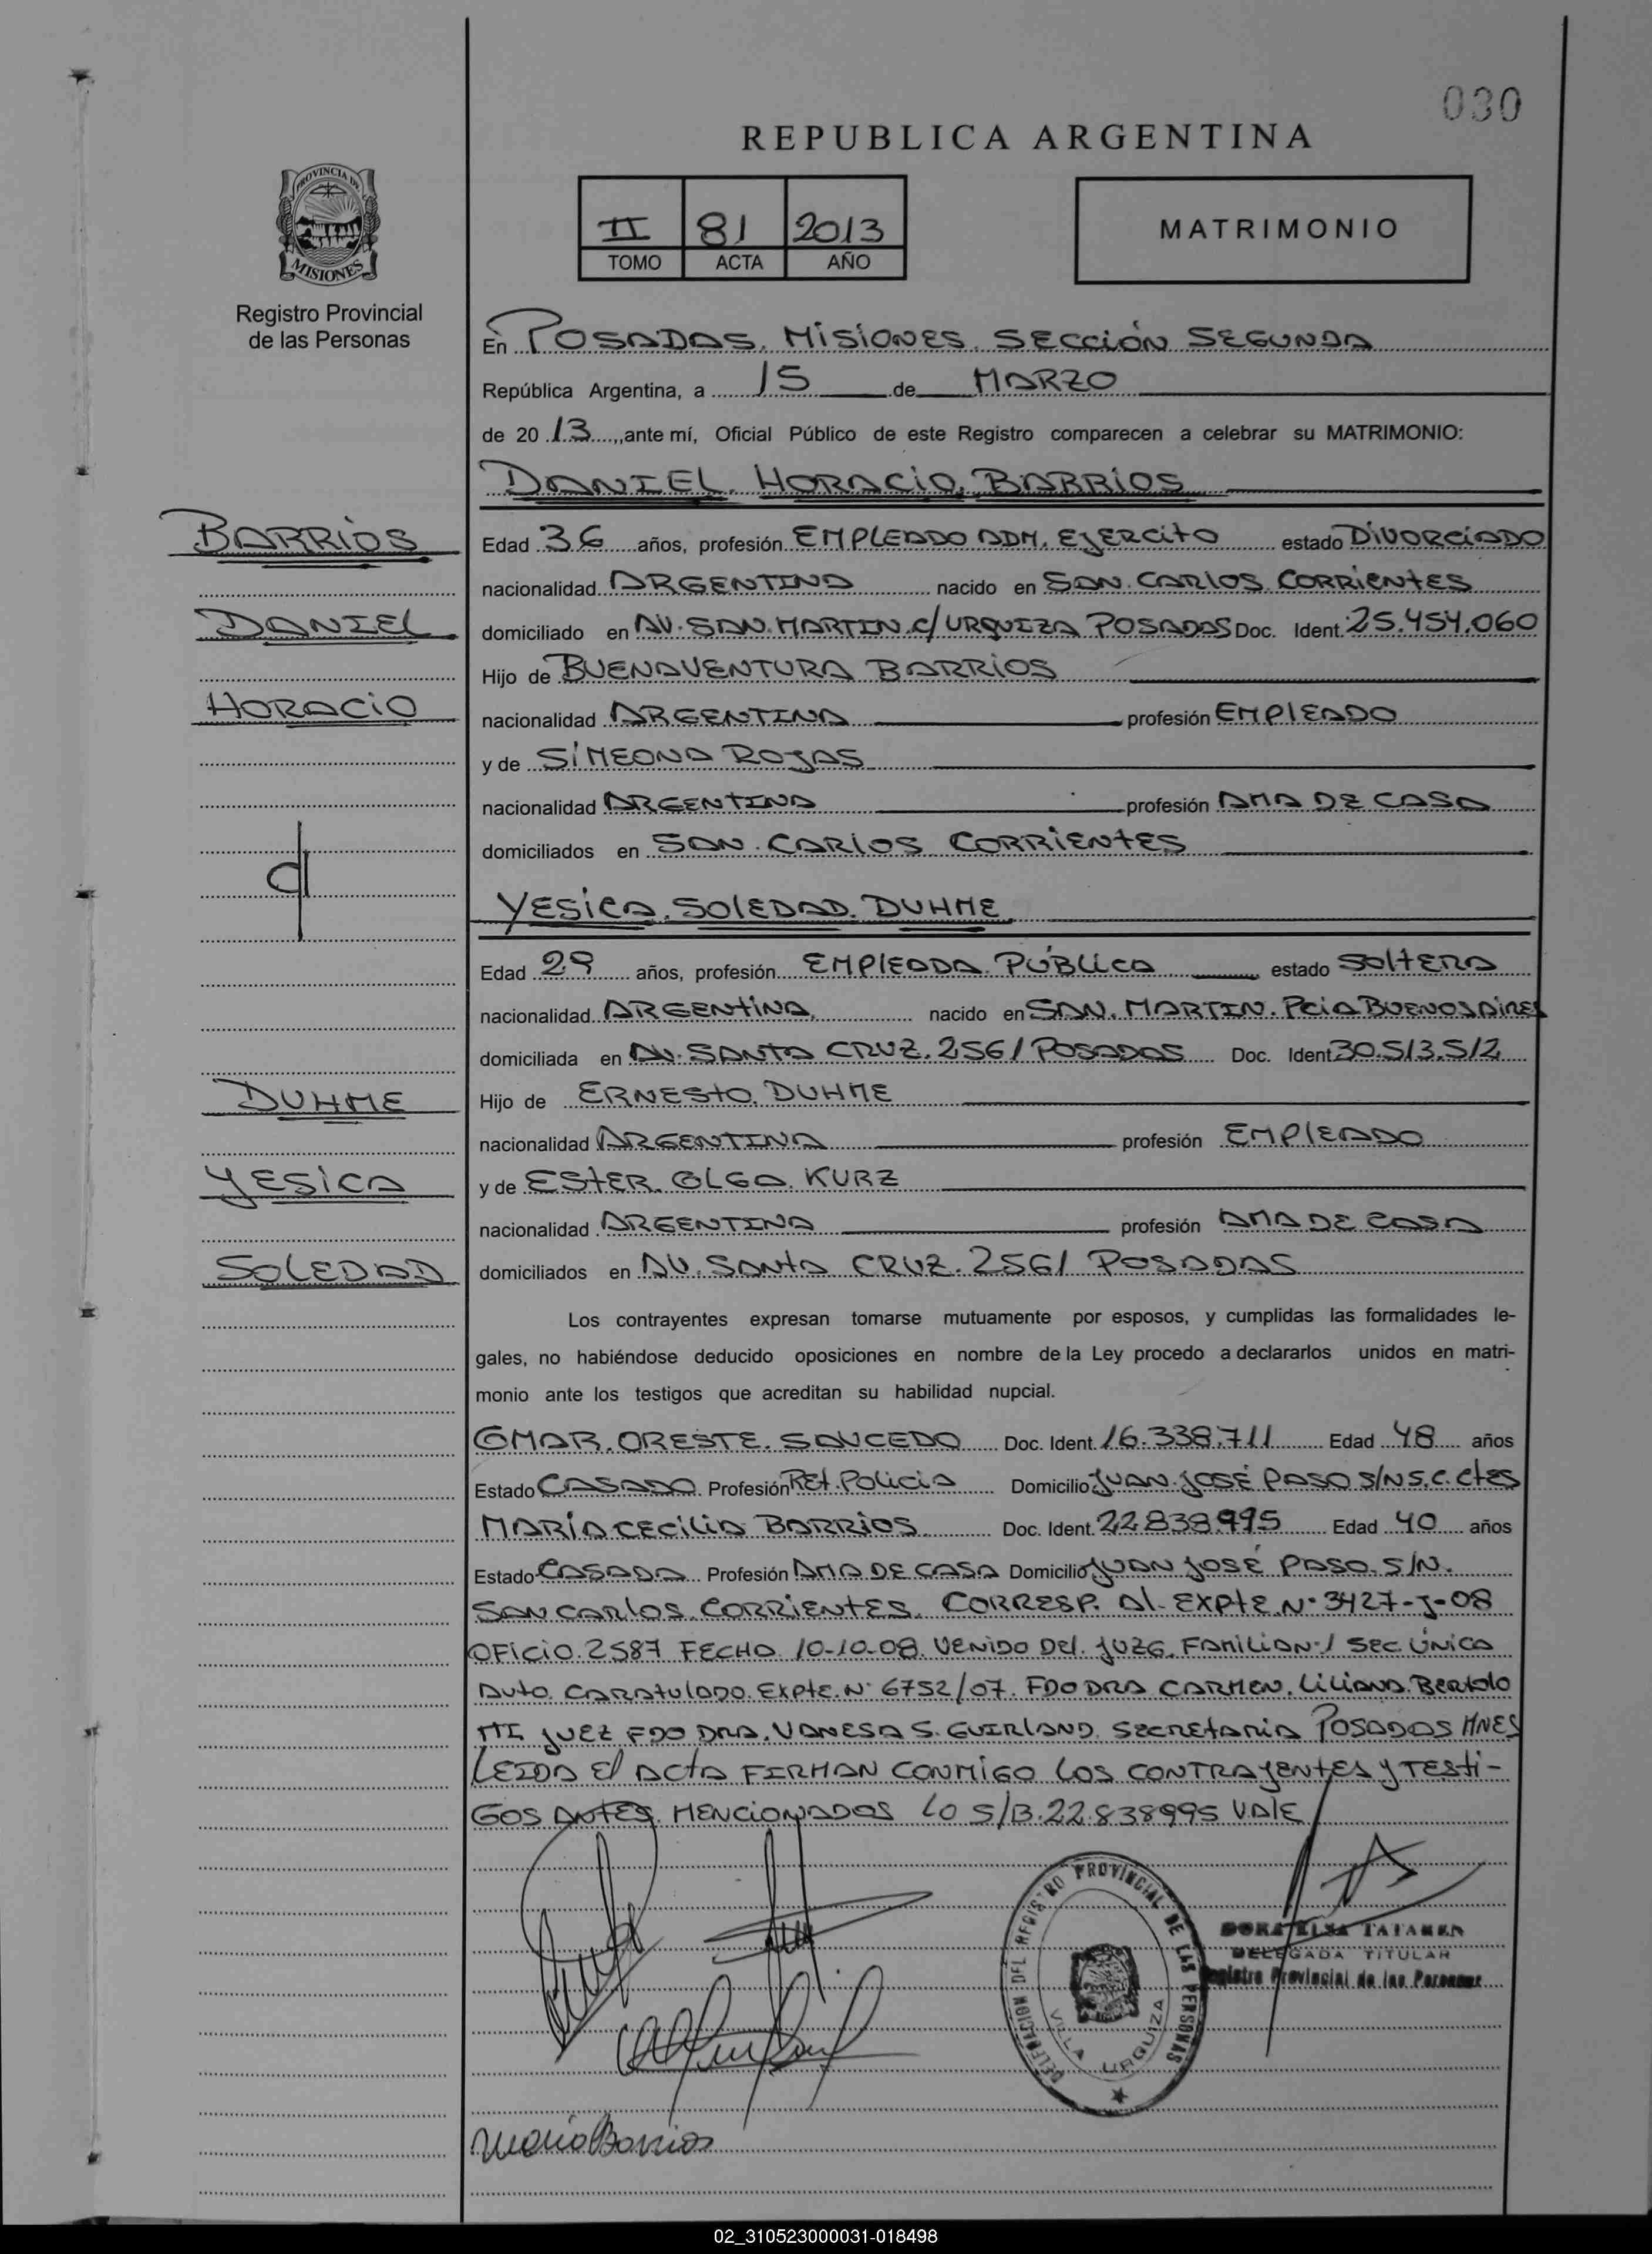 030
REPUBLICA ARGENTINA
PROVINCIA DE
MISIONES
Registro Provincial
de las Personas
II 81 2013
TOMO ACTA AÑO
MATRIMONIO
En POSADAS. MISIONES. SECCIÓN SEGUNDA
República Argentina, a 15 de MARZO
de 2013, ante mí, Oficial Público de este Registro comparecen a celebrar su MATRIMONIO:
DANIEL. HORACIO. BARRIOS
BARRIOS
Edad 36 años, profesión EMPLEADO ADM. EJERCITO estado DIVORCIADO
nacionalidad ARGENTINA nacido en SAN. CARLOS. CORRIENTES
DANIEL
domiciliado en AV. SAN. MARTIN. C/ URQUIZA POSADAS Doc. Ident. 25.454.060
Hijo de BUENAVENTURA BARRIOS
HORACIO
nacionalidad ARGENTINA profesión EMPLEADO
y de SIMEONA ROJAS
nacionalidad ARGENTINA profesión AMA DE CASA
domiciliados en SAN. CARLOS CORRIENTES
YESICA. SOLEDAD. DUHME
Edad 29 años, profesión EMPLEADA. PÚBLICA estado SOLTERA
nacionalidad ARGENTINA. nacido en SAN. MARTIN. PCIA BUENOS AIRES
domiciliada en AV. SANTA CRUZ. 2561 POSADAS Doc. Ident 30.513.512
DUHME
Hijo de ERNESTO. DUHME
nacionalidad ARGENTINA profesión EMPLEADO
YESICA
y de ESTER. OLGA. KURZ
nacionalidad ARGENTINA profesión AMA DE CASA
SOLEDAD
domiciliados en AV. SANTA CRUZ. 2561 POSADAS
Los contrayentes expresan tomarse mutuamente por esposos, y cumplidas las formalidades le-
gales, no habiéndose deducido oposiciones en nombre de la Ley procedo a declararlos unidos en matri-
monio ante los testigos que acreditan su habilidad nupcial.
OMAR. ORESTE. SAUCEDO Doc. Ident. 16.338.711 Edad 48 años
Estado CASADO Profesión RET. POLICIA Domicilio JUAN JOSÉ PASO S/N S.C. CTES
MARÍA CECILIA BARRIOS Doc. Ident. 22.838.995 Edad 40 años
Estado CASADA Profesión AMA DE CASA Domicilio JUAN JOSÉ PASO. S/N.
SAN CARLOS. CORRIENTES. CORRESP. AL EXPTE. N° 3427-J-08
OFICIO. 2587 FECHA 10-10-08. VENIDO DEL. JUZG. FAMILIA N° 1 SEC. ÚNICA
AUTO. CARATULADO. EXPTE. N° 6752/07. FDO DRA CARMEN. LILIANA. BERTOLO
TTI JUEZ FDO DRA. VANESA S. GUIRLAND. SECRETARIA POSADAS MNES
LEIDA EL ACTA FIRMAN CONMIGO LOS CONTRAYENTES Y TESTI-
GOS ANTES. MENCIONADOS LO S/B. 22.838995 VALE
DELEGACION DEL REGISTRO PROVINCIAL DE LAS PERSONAS
VILLA URQUIZA
DORA ELSA
DELEGADA TITULAR
Registro Provincial de las Personas
María Barrios
02_310523000031-018498